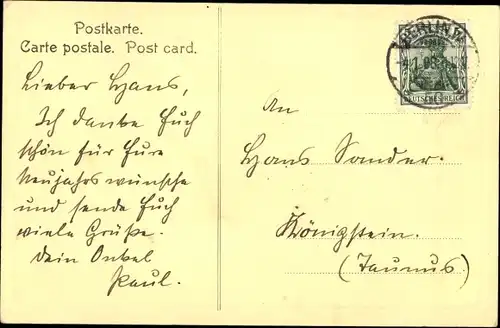 Postkarte.
Carte postale. Post card.
Lieber Hans,
Ich danke Euch
schön für Eure
Neujahrswünsche
und sende Euch
viele Grüße.
Dein Onkel
Paul.
BERLIN
DEUTSCHES REICH
An
Hans Sander.
Königstein.
(Taunus)